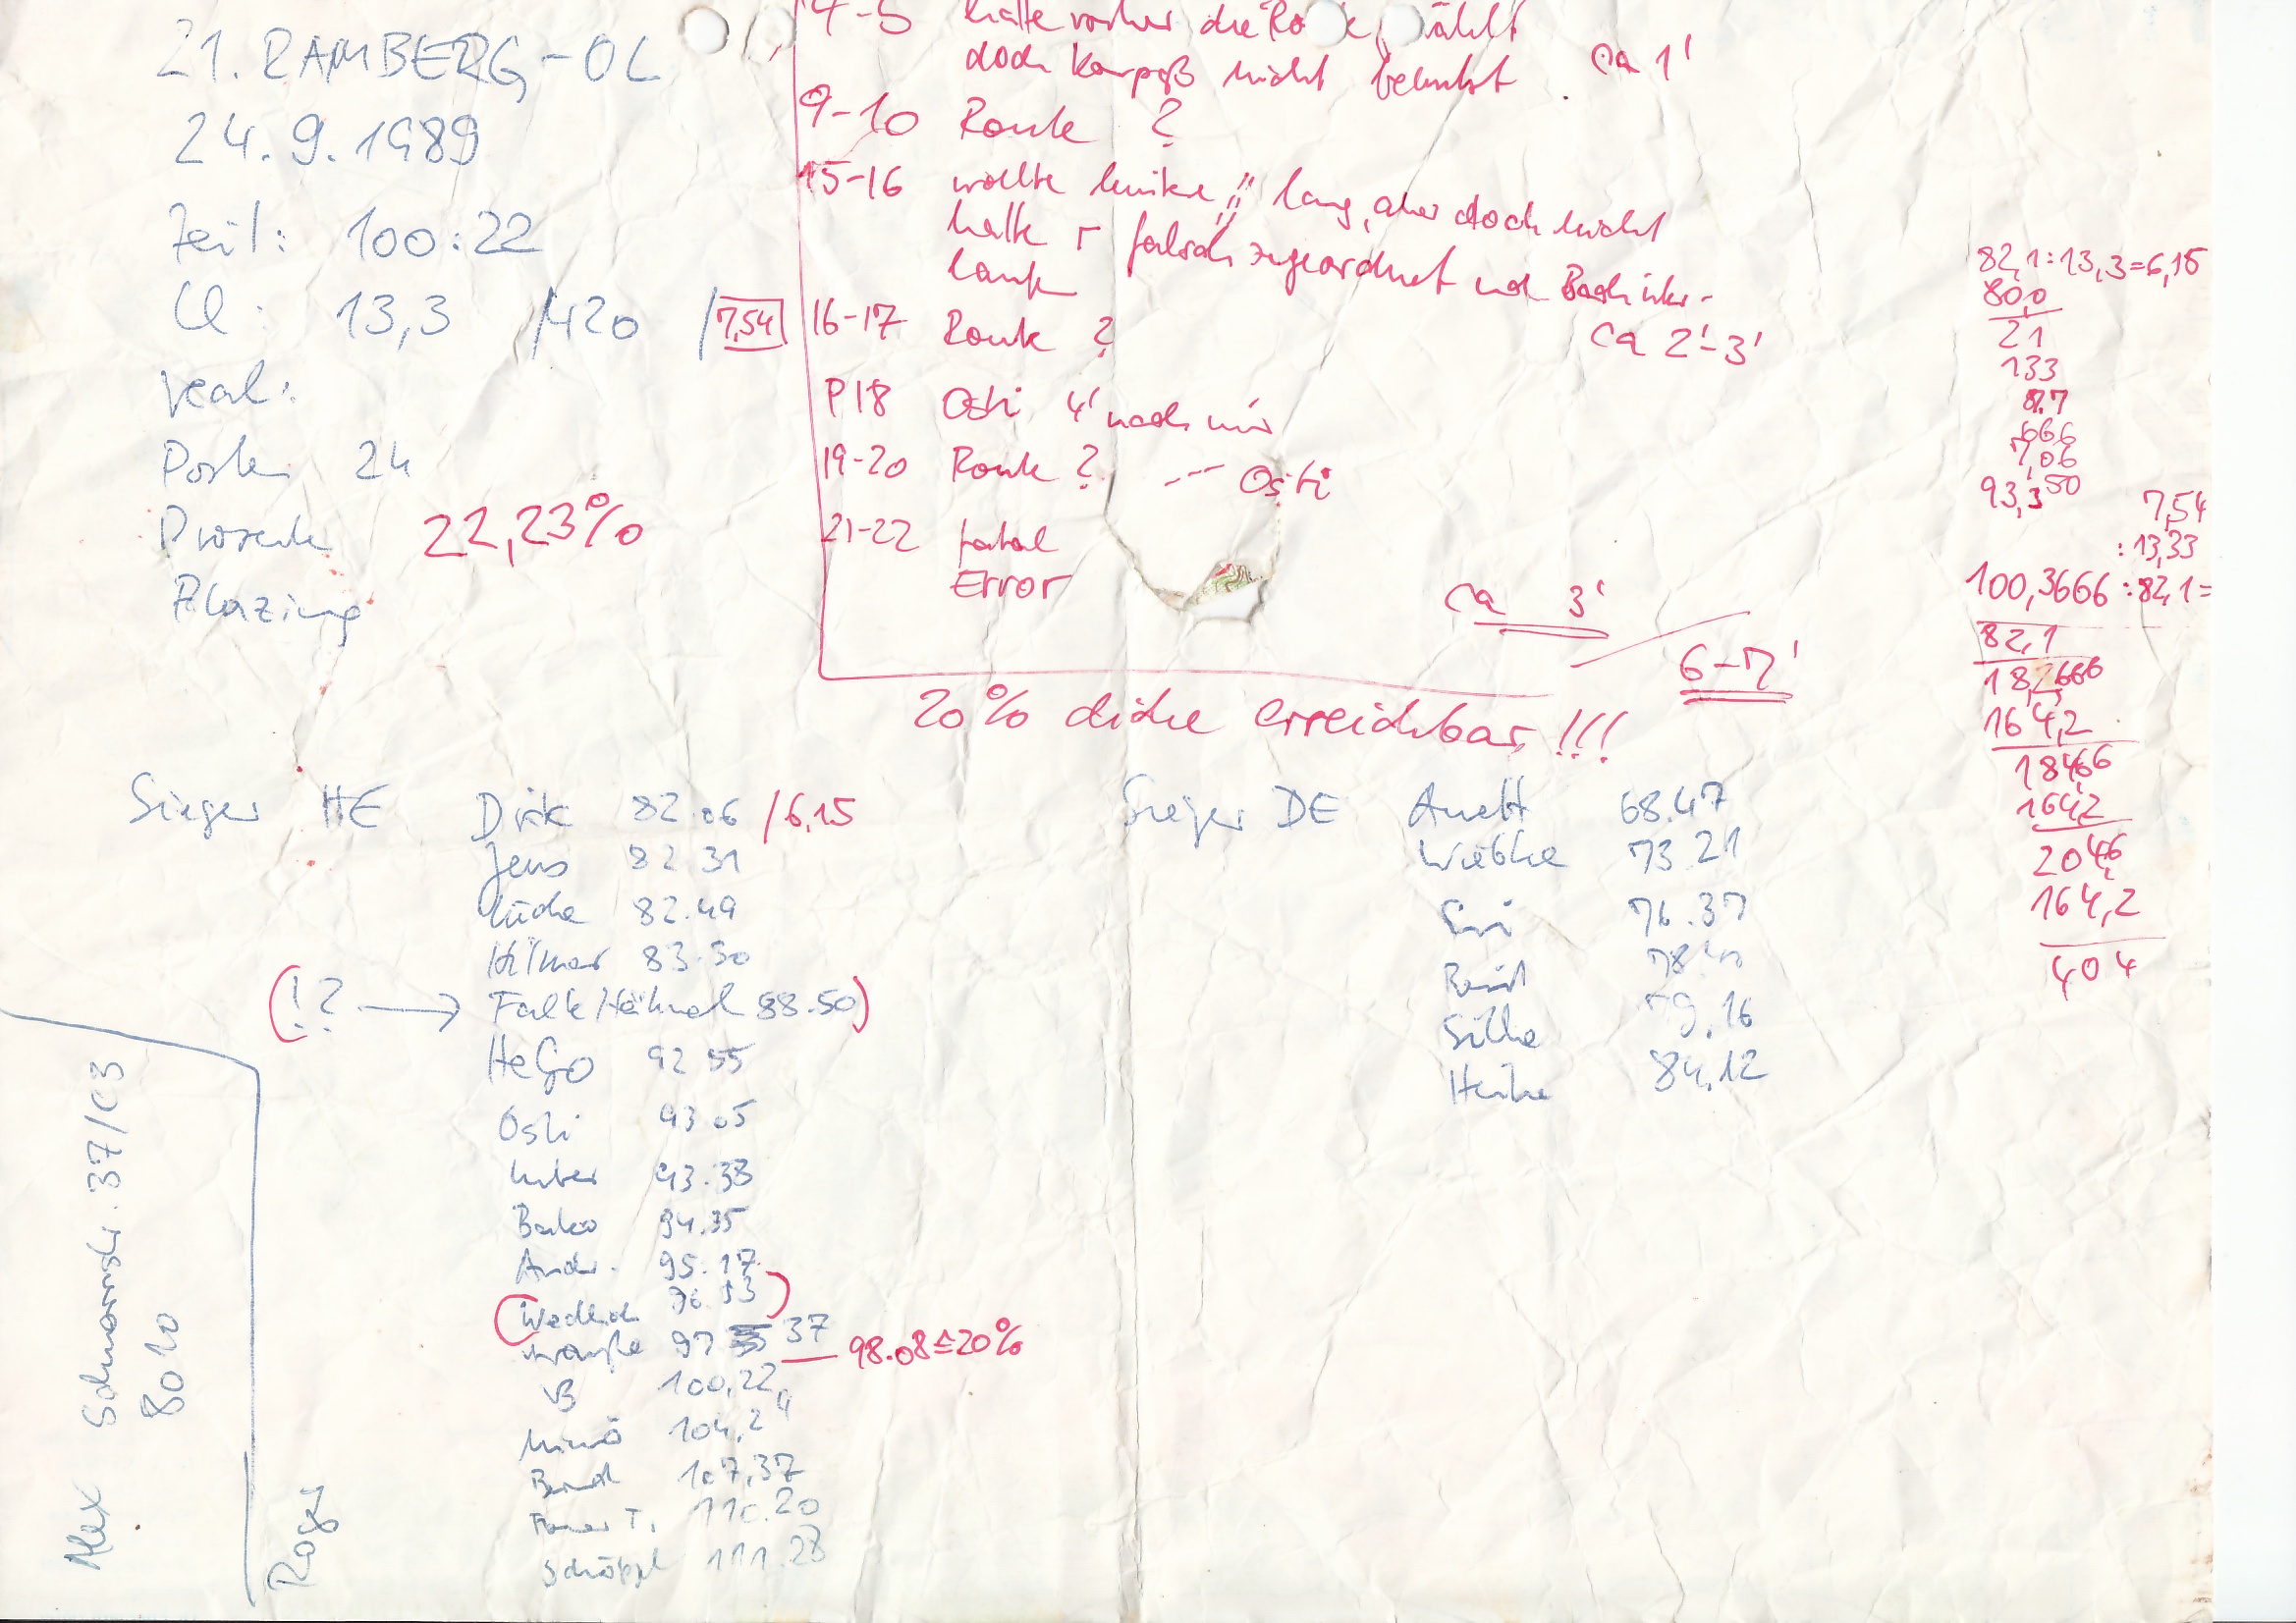 21. RAMBERG-OL
24.9.1989
Zeit: 100:22
13,3 /420 /7,54
real:
Posten 24
Prozente 22,23%
Plazierung
4-5 hatte vorher die
doch Kompaß nicht benutzt ca 1'
9-10 Route ?
15-16 wollte linken // lang, aber doch nicht
hatte r falsch zugeordnet und Bach
lang
16-17 Route ? ca 2'-3'
P18 Osti 4' nach mir
19-20 Route ? --- Osti
21-22 fatal
Error ca 3'
6-7'
20% dicke erreichbar !!!
82,1:13,3=6,15
80,0
21
133
8,7
666
7,06
93,3 50
7,54
:13,33
100,3666 :82,1=
82,1
18,2666
164,2
18466
1642
2046
164,2
404
Sieger HE Dirk 82.06 /6,15
Jens 82.31
82.49
Hilmar 83.30
(!? → Falk/Hähnel 88.50)
HeGo 92 55
Osti 93.05
93.33
94.35
Andr. 95.17
(
96.53)
97 37
98.08≙20%
100,22
104,24
107,37
T. 110.20
111.28
Sieger DE Anett 68.47
Wiebke 73.21
76.37
78.40
Silke 79.16
Heike 84.12
Alex Schnorrstr. 37/03
8020
Roggi